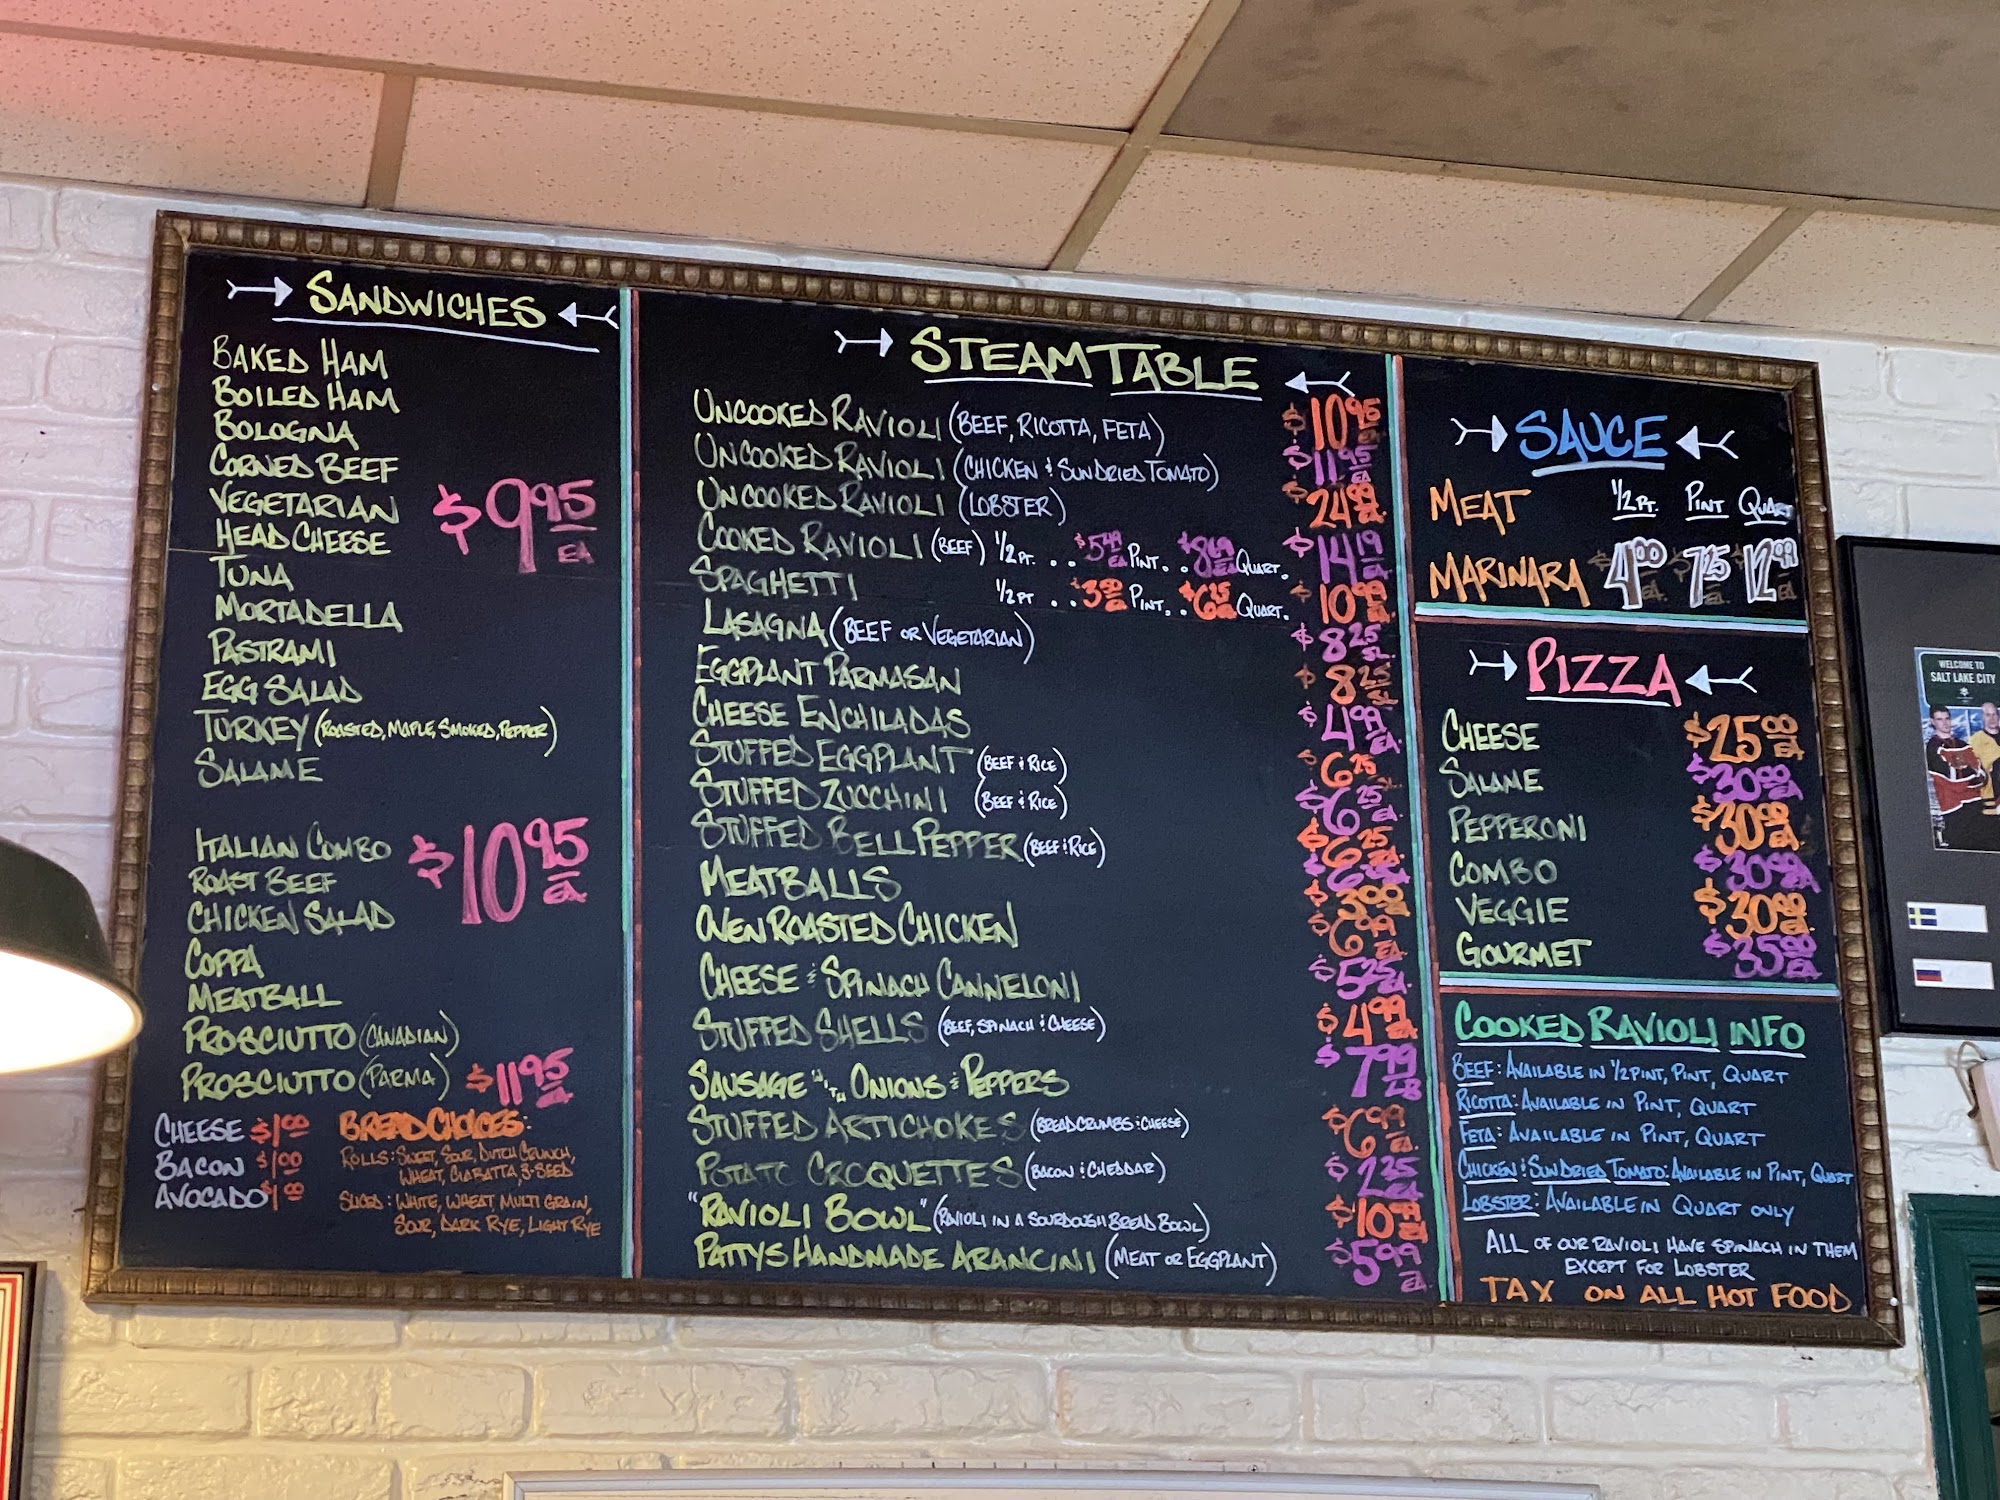 SANDWICHES
BAKED HAM
BOILED HAM
BOLOGNA
CORNED BEEF
VEGETARIAN $9.95 EA
HEAD CHEESE
TUNA
MORTADELLA
PASTRAMI
EGG SALAD
TURKEY (ROASTED, MAPLE, SMOKED, PEPPER)
SALAME
ITALIAN COMBO $10.95 EA.
ROAST BEEF
CHICKEN SALAD
COPPA
MEATBALL
PROSCIUTTO (CANADIAN)
PROSCIUTTO (PARMA) $11.95 EA.
CHEESE $1.00
BACON $1.00
AVOCADO $1.00
BREAD CHOICES:
ROLLS: SWEET, SOUR, DUTCH CRUNCH,
WHEAT, CIABATTA, 3-SEED
SLICED: WHITE, WHEAT, MULTI GRAIN,
SOUR, DARK RYE, LIGHT RYE
STEAM TABLE
UNCOOKED RAVIOLI (BEEF, RICOTTA, FETA) $10.95
UNCOOKED RAVIOLI (CHICKEN & SUNDRIED TOMATO) $11.95 EA
UNCOOKED RAVIOLI (LOBSTER) $24.99 EA.
COOKED RAVIOLI (BEEF) 1/2 PT. .. $5.49 EA PINT. .. $8.69 EA QUART. $14.19 EA.
SPAGHETTI 1/2 PT .. $3.50 EA PINT. .. $6.25 EA QUART. $10.99 EA.
LASAGNA (BEEF OR VEGETARIAN) $8.25 SL.
EGGPLANT PARMASAN $8.25 SL
CHEESE ENCHILADAS $4.99 EA.
STUFFED EGGPLANT (BEEF & RICE) $6.25
STUFFED ZUCCHINI (BEEF & RICE) $6.25 EA.
STUFFED BELL PEPPER (BEEF & RICE) $6.25 EA.
MEATBALLS $3.00
OVEN ROASTED CHICKEN $6.99 EA.
CHEESE & SPINACH CANNELONI $5.25 EA.
STUFFED SHELLS (BEEF, SPINACH & CHEESE) $4.99 EA
SAUSAGE WITH ONIONS & PEPPERS $7.99 LB
STUFFED ARTICHOKES (BREADCRUMBS & CHEESE) $6.99 EA.
POTATO CROQUETTES (BACON & CHEDDAR) $2.25 EA
"RAVIOLI BOWL" (RAVIOLI IN A SOURDOUGH BREAD BOWL) $10.99 EA.
PATTYS HANDMADE ARANCINI (MEAT OR EGGPLANT) $5.99 EA.
SAUCE
MEAT 1/2 PT. PINT QUART
MARINARA $4.00 EA. $7.25 EA. $12.99 EA.
PIZZA
CHEESE $25.00 EA.
SALAME $30.00 EA
PEPPERONI $30.00 EA.
COMBO $30.00 EA
VEGGIE $30.00 EA.
GOURMET $35.00 EA
COOKED RAVIOLI INFO
BEEF: AVAILABLE IN 1/2 PINT, PINT, QUART
RICOTTA: AVAILABLE IN PINT, QUART
FETA: AVAILABLE IN PINT, QUART
CHICKEN & SUNDRIED TOMATO: AVAILABLE IN PINT, QUART
LOBSTER: AVAILABLE IN QUART ONLY
ALL OF OUR RAVIOLI HAVE SPINACH IN THEM
EXCEPT FOR LOBSTER
TAX ON ALL HOT FOOD
WELCOME TO
SALT LAKE CITY